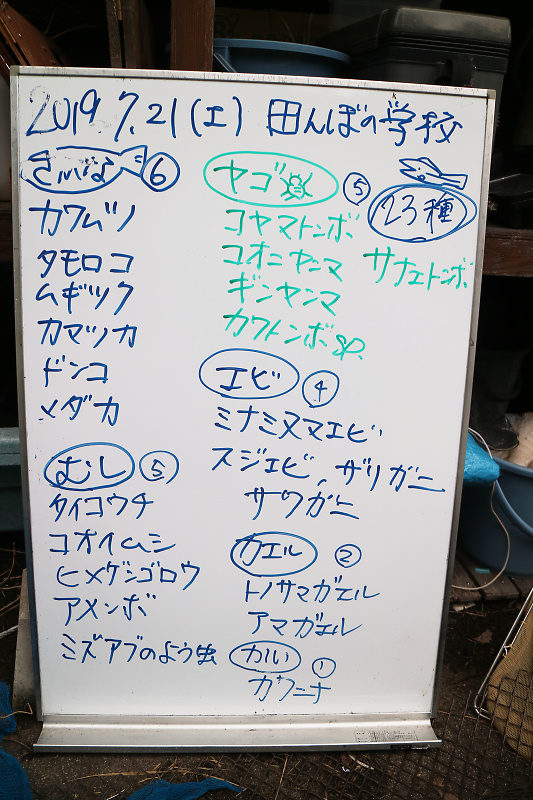 2019.7.21(土) 田んぼの学校
さかな ⑥
カワムツ
タモロコ
ムギツク
カマツカ
ドンコ
メダカ
むし ⑤
タイコウチ
コオイムシ
ヒメゲンゴロウ
アメンボ
ミズアブのよう虫
ヤゴ ⑤
コヤマトンボ
コオニヤンマ
ギンヤンマ
カワトンボsp.
サナエトンボ
23種
エビ ④
ミナミヌマエビ
スジエビ、ザリガニ
サワガニ
カエル ②
トノサマガエル
アマガエル
かい ①
カワニナ